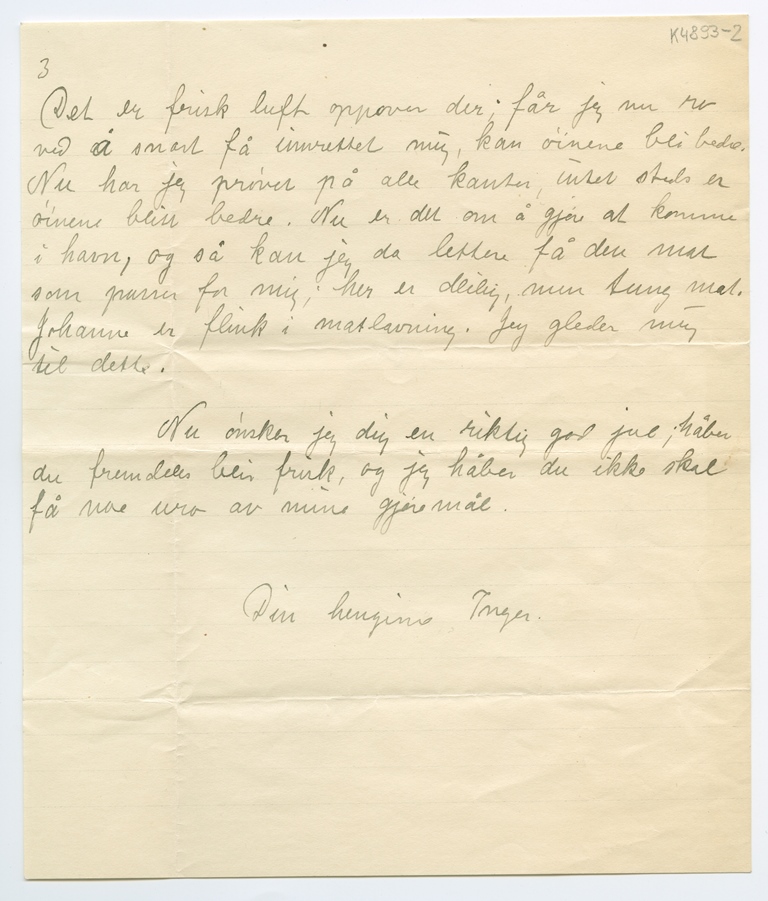 K4893-2
3
Det er frisk luft oppover der; får jeg nu ro
ved å snart få innrettet mig, kan öinene bli bedre.
Nu har jeg prøvet på alle kanter, intet steds er
öinene blitt bedre. Nu er det om å gjøre at komme
i havn, og så kan jeg da lettere få den mat
som passer for mig; her er deilig, men tung mat.
Johanne er flink i matlavning. Jeg gleder mig
til dette.
Nu ønsker jeg dig en riktig god jul; håber
du fremdeles blir frisk, og jeg håber du ikke skal
få noe uro av mine gjøremål.
Din hengivne Inger.